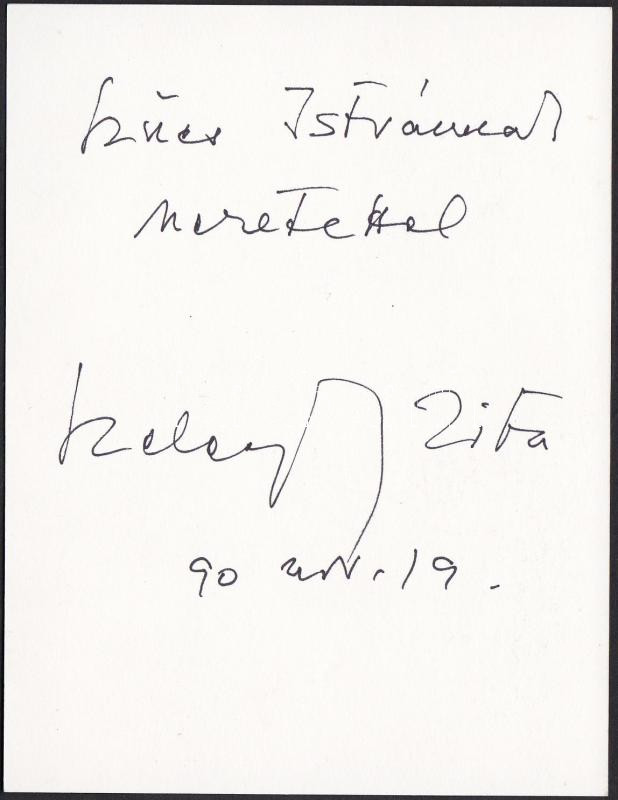 Szűcs Istvánnak
szeretettel
Szeleczky Zita
90 nov. 19.